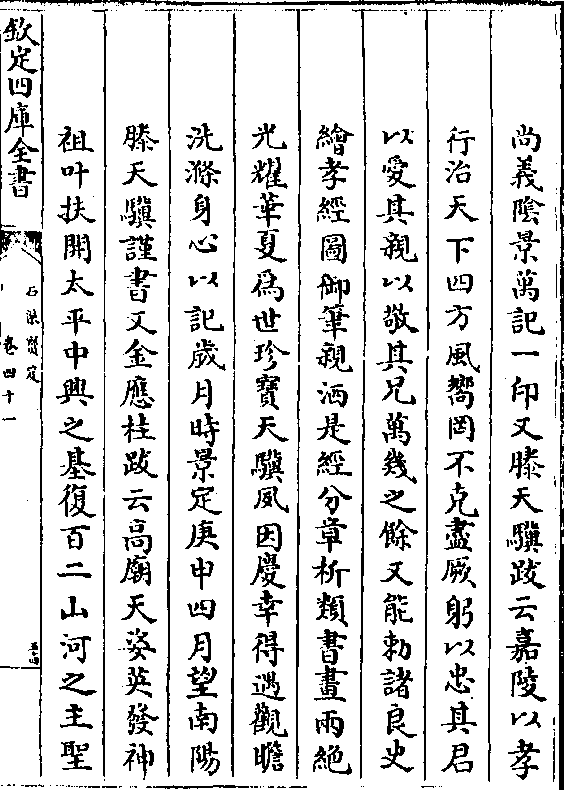 尚義陰景萬記一印又滕天驥跋云嘉陵以孝
行治天下四方風嚮罔不克盡厥躬以忠其君
以愛其親以敬其兄萬幾之餘又能勅諸良史
繪孝經圖御筆親洒是經分章析類書畫兩絶
光耀華夏為世珍寶天驥夙因慶幸得遇觀瞻
洗滌身心以記歲月時景定庚申四月望南陽
滕天驥謹書又金應桂跋云高廟天姿英發神
祖叶扶開太平中興之基復百二山河之主聖
欽定四庫全書
石渠寳笈
卷四十一